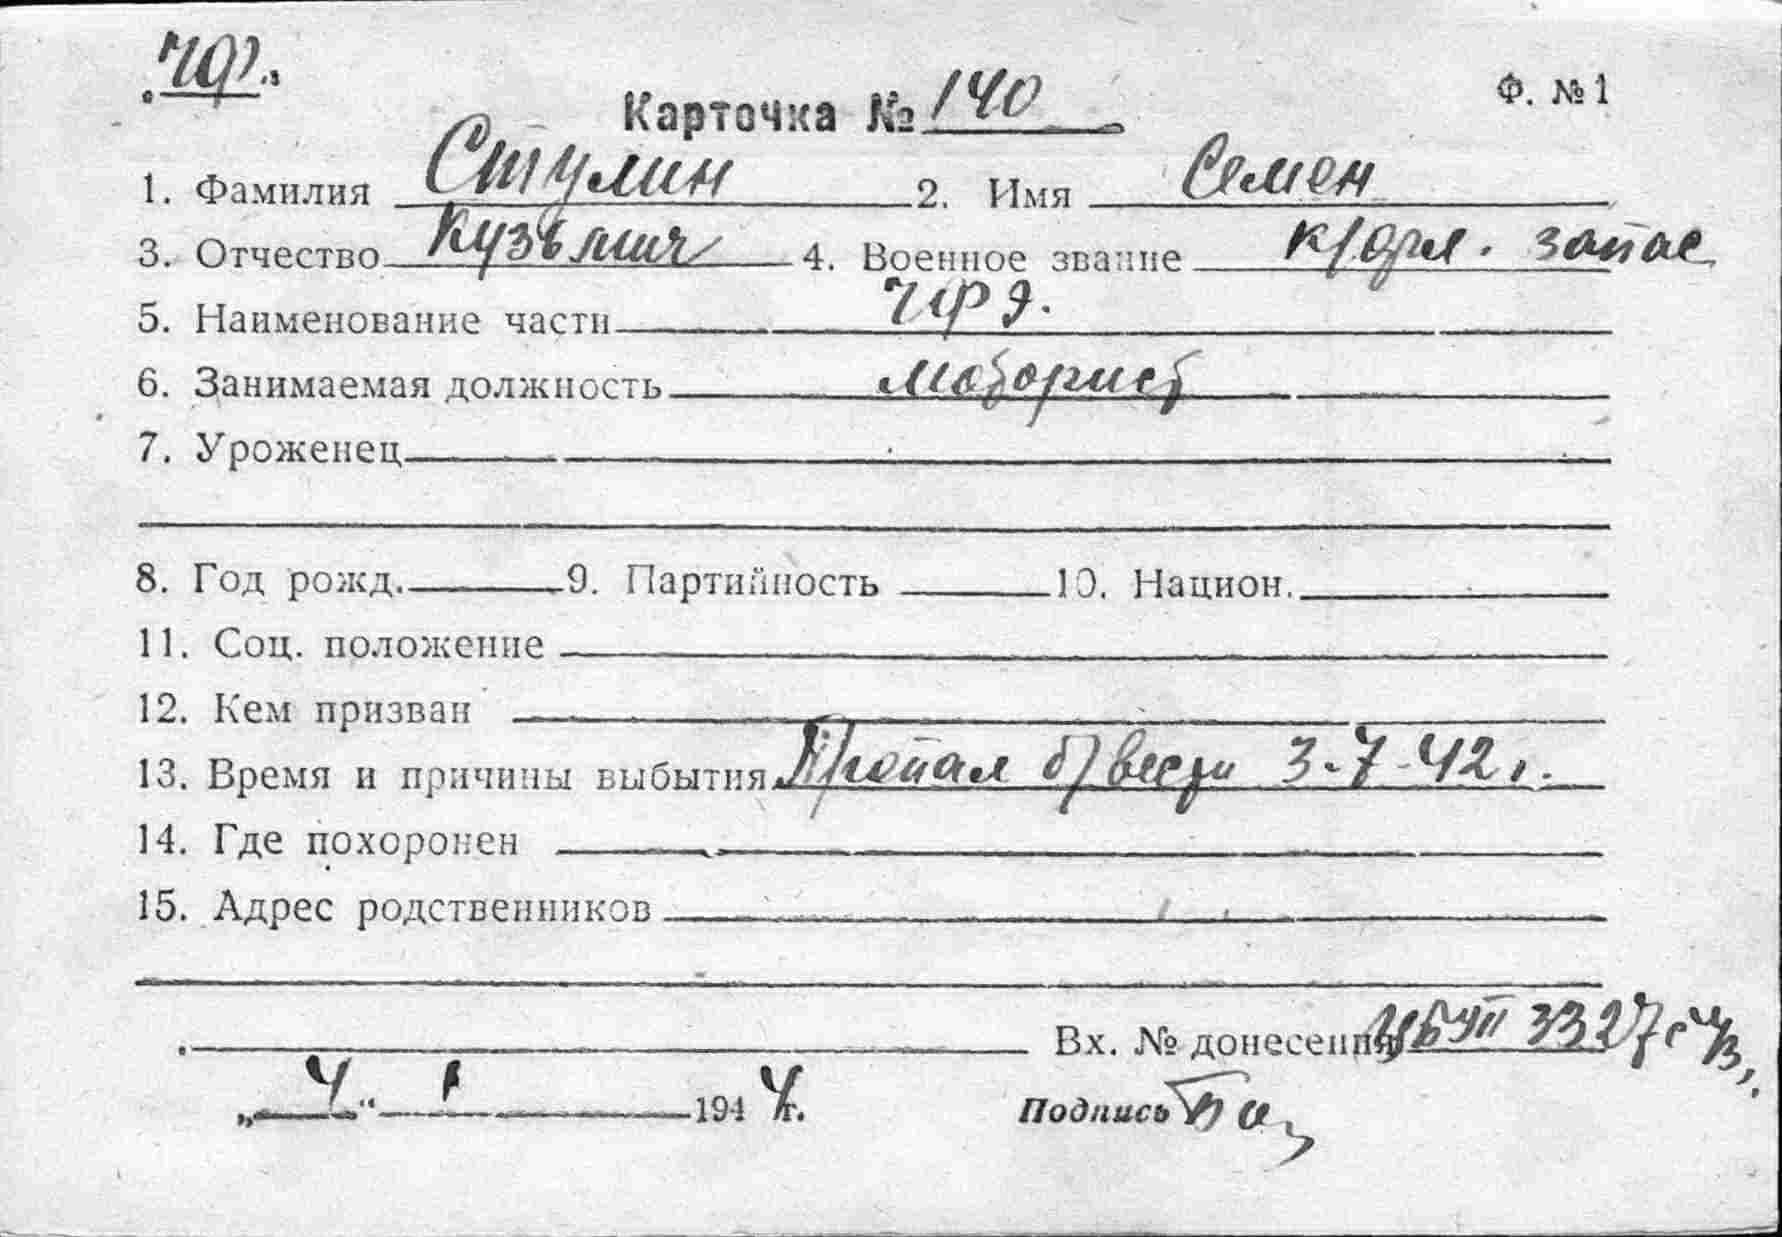 ЧФ.
Ф. №1
Карточка № 140
1. Фамилия Стулин 2. Имя Семен
3. Отчество Кузьмич 4. Военное звание к/фл. запас
5. Наименование части ЧФ
6. Занимаемая должность моторист
7. Уроженец
8. Год рожд. 9. Партийность 10. Национ.
11. Соц. положение
12. Кем призван
13. Время и причины выбытия Пропал б/вести 3-7-42 г.
14. Где похоронен
15. Адрес родственников
Вх. № донесения 3327с
„4“ 1 1944г. Подпись